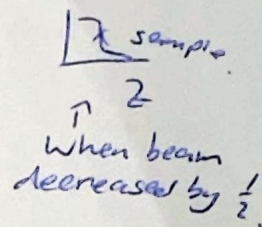 sample
2
↑
when beam
decreased by 1/2.